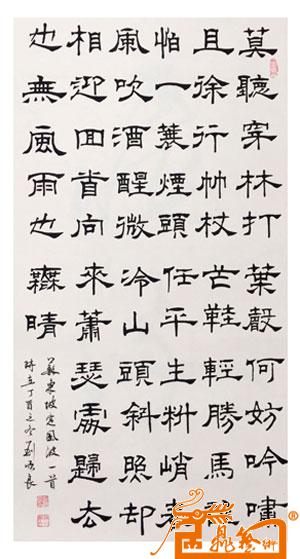 莫聽穿林打葉聲何妨吟嘯
且徐行竹杖芒鞋輕勝馬
怕一蓑煙頭任平生料峭春
風吹酒醒微冷山頭斜照却
相迎回首向來蕭瑟處歸去
也無風雨也無晴
蘇東坡定風波一首
時在丁酉之冬劉